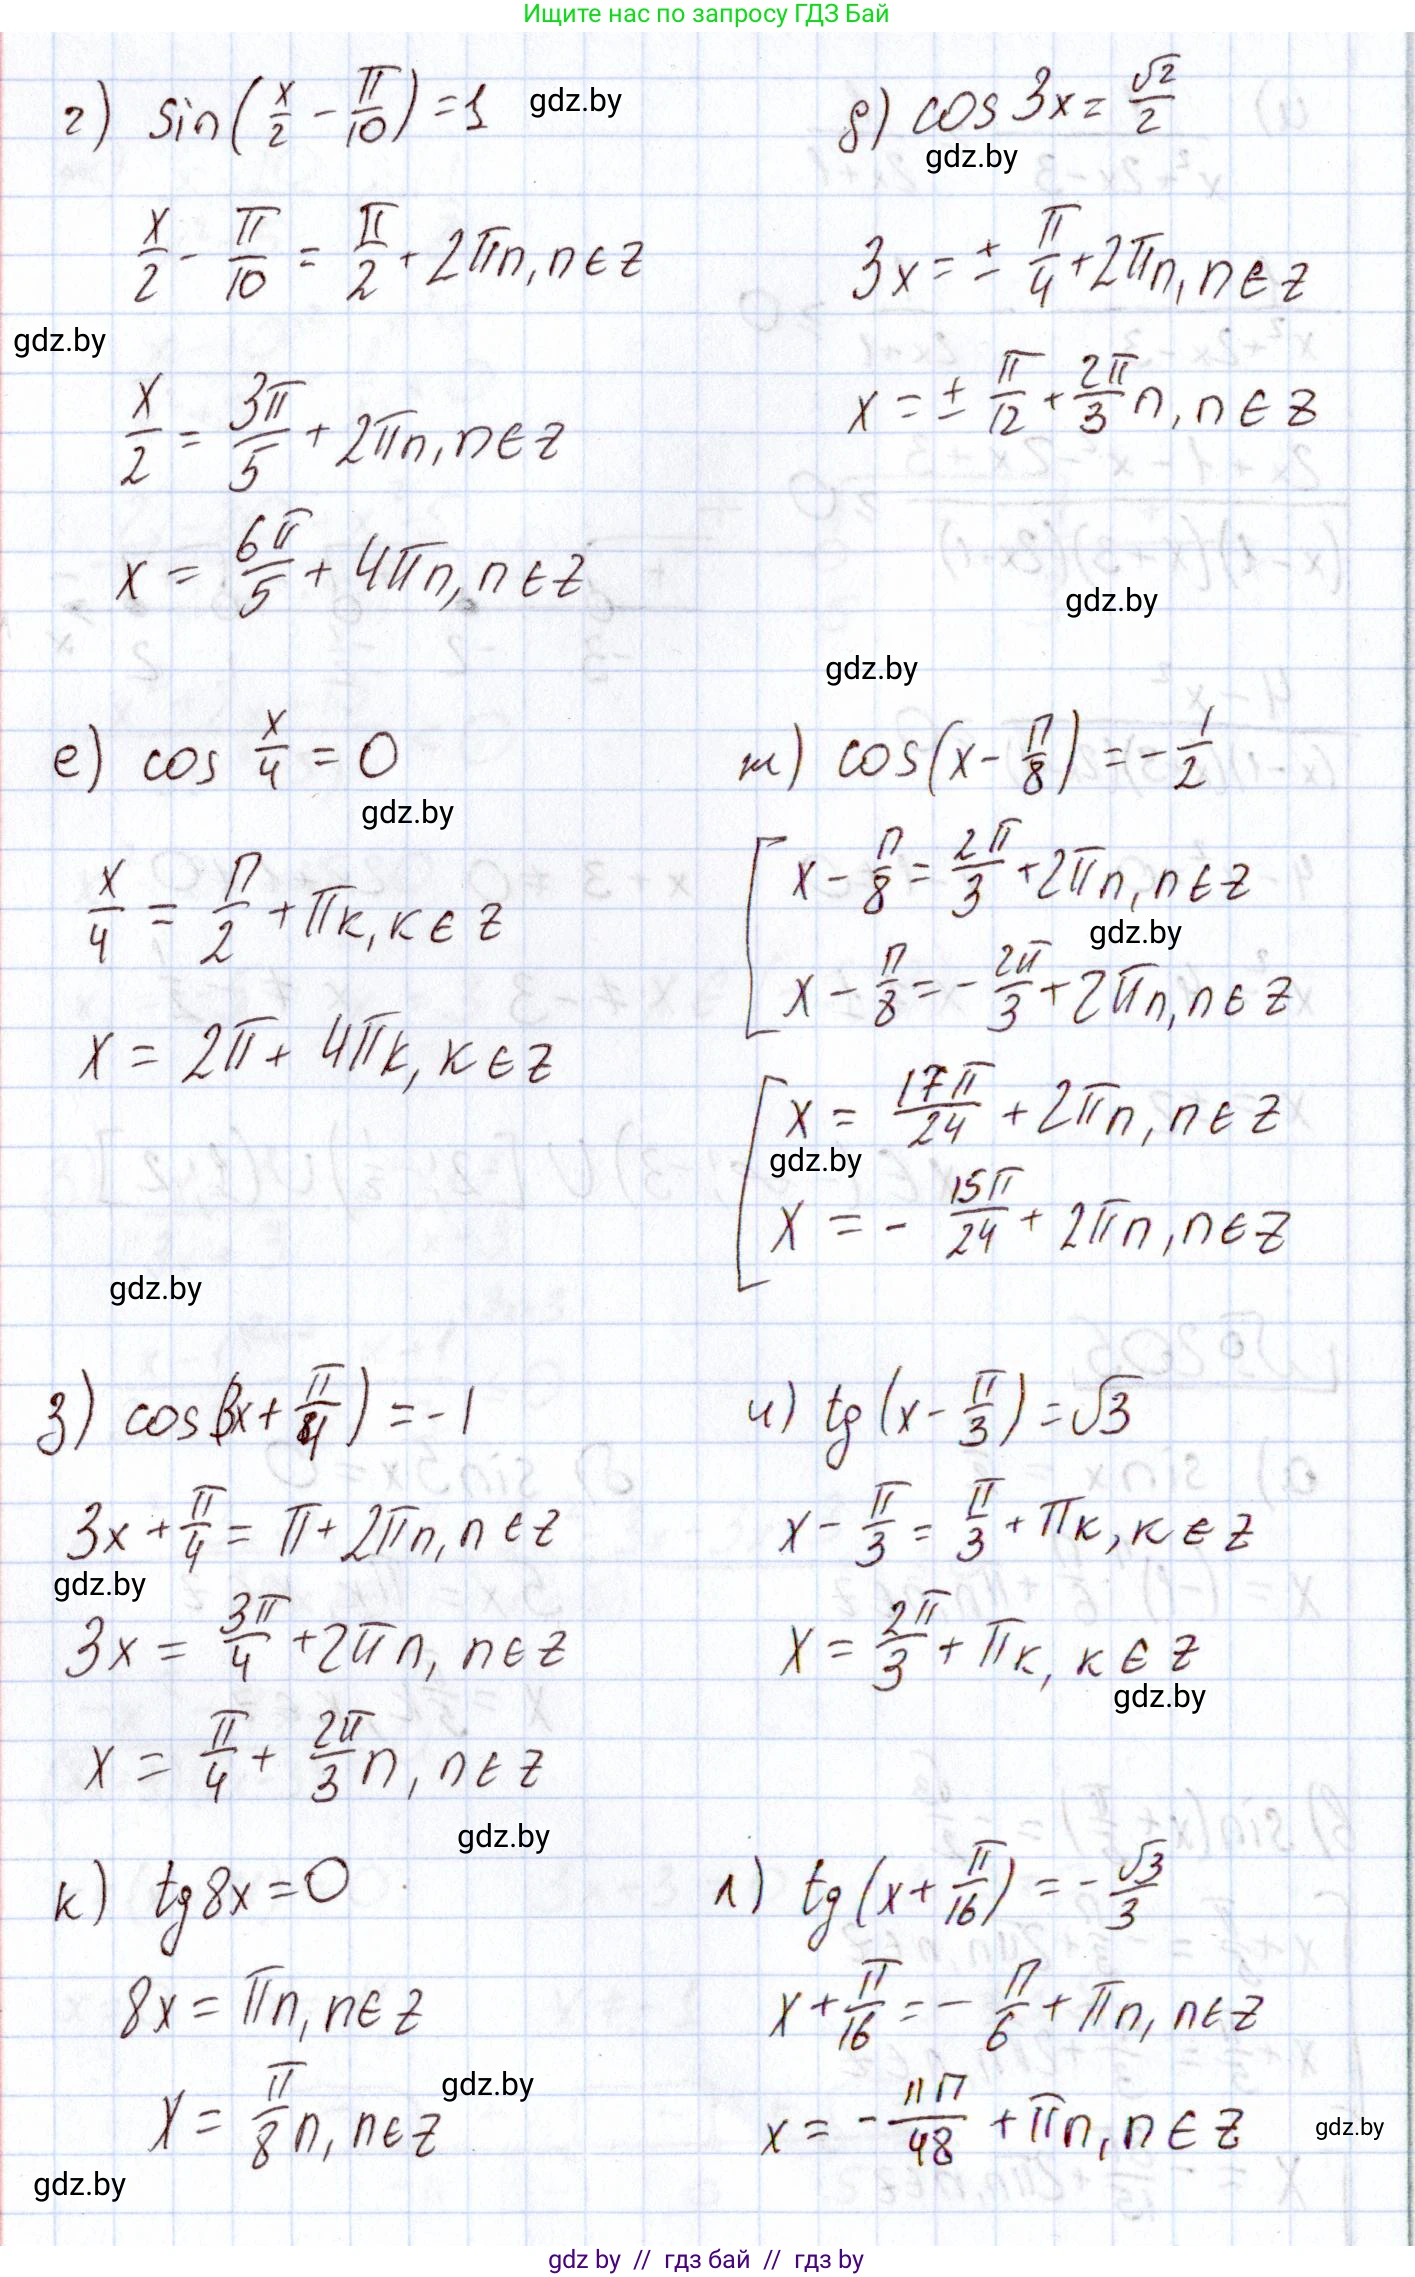 Ищите нас по запросу ГДЗ Бай
г) sin(x/2 - π/10) = 1
gdz.by
x/2 - π/10 = π/2 + 2πn, n ∈ z
gdz.by
x/2 = 3π/5 + 2πn, n ∈ z
x = 6π/5 + 4πn, n ∈ z
д) cos 3x = √2/2
gdz.by
3x = ± π/4 + 2πn, n ∈ z
x = ± π/12 + 2π/3 n, n ∈ z
gdz.by
gdz.by
е) cos x/4 = 0
gdz.by
x/4 = π/2 + πk, k ∈ z
x = 2π + 4πk, k ∈ z
ж) cos(x - π/8) = - 1/2
x - π/8 = 2π/3 + 2πn, n ∈ z
gdz.by
x - π/8 = - 2π/3 + 2πn, n ∈ z
x = 17π/24 + 2πn, n ∈ z
gdz.by
x = - 15π/24 + 2πn, n ∈ z
gdz.by
з) cos(3x + π/4) = -1
3x + π/4 = π + 2πn, n ∈ z
gdz.by
3x = 3π/4 + 2πn, n ∈ z
x = π/4 + 2π/3 n, n ∈ z
gdz.by
и) tg(x - π/3) = √3
x - π/3 = π/3 + πk, k ∈ z
x = 2π/3 + πk, k ∈ z
gdz.by
к) tg 8x = 0
8x = πn, n ∈ z
gdz.by
x = π/8 n, n ∈ z
gdz.by
л) tg(x + π/16) = - √3/3
x + π/16 = - π/6 + πn, n ∈ z
x = - 11π/48 + πn, n ∈ z
gdz.by
gdz by // гдз бай // гдз by